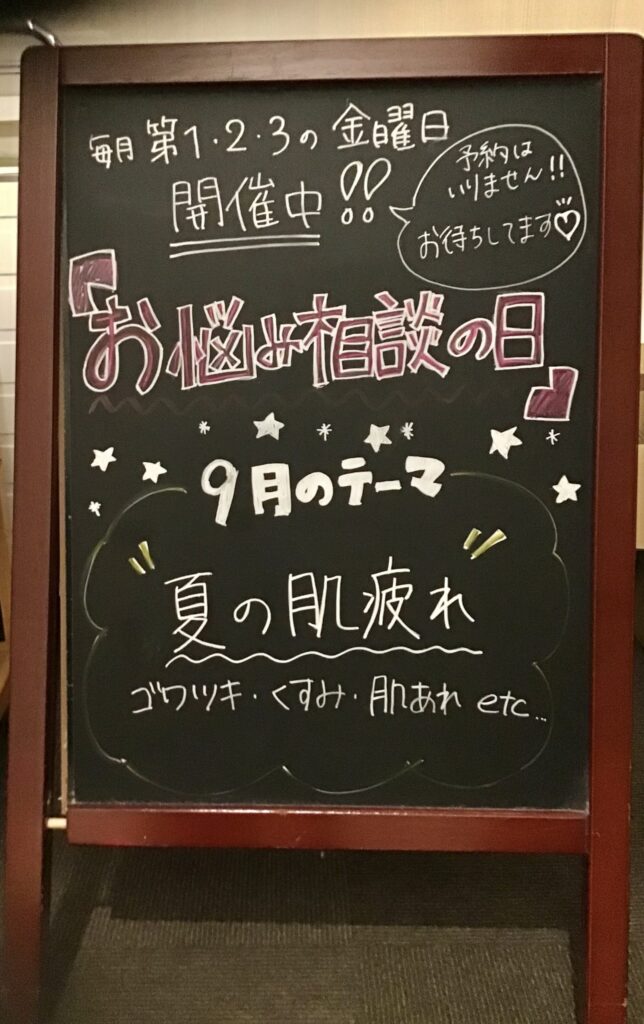 毎月 第1・2・3の 金曜日
開催中!!
予約は
いりません!!
お待ちしてます♡
『お悩み相談の日』
9月のテーマ
夏の肌疲れ
ゴワツキ・くすみ・肌あれ etc...